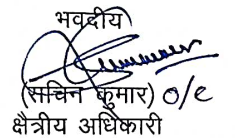 भवदीय
(सचिन कुमार) O/C
क्षैत्रीय अधिकारी